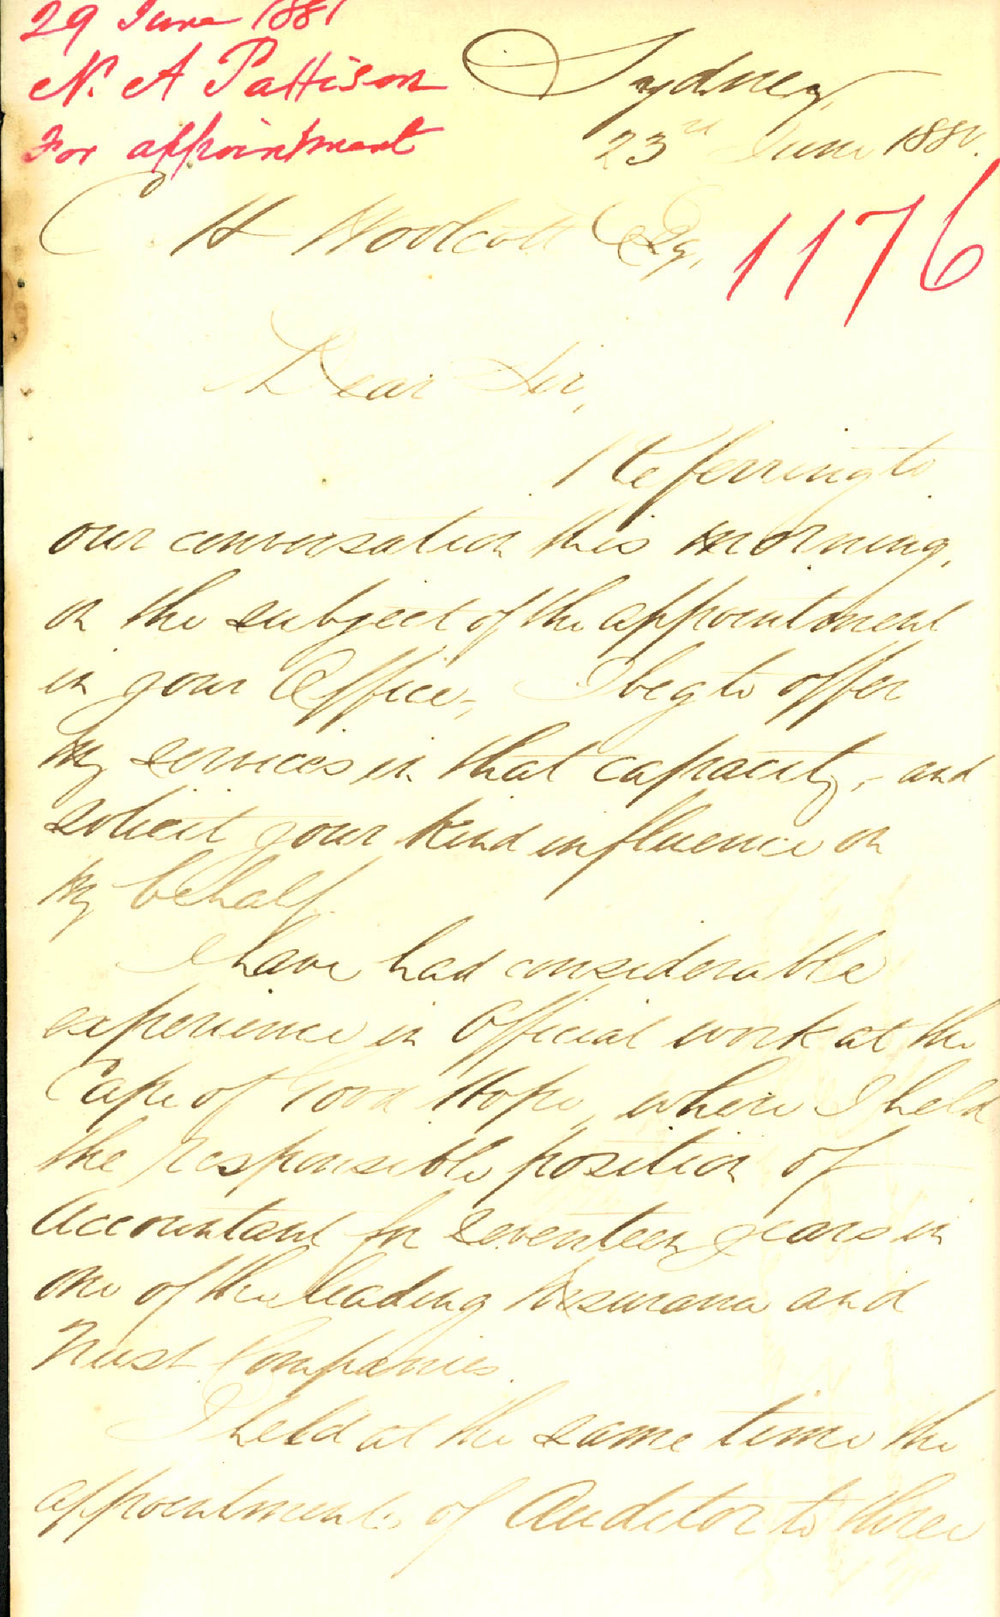 29 June 1881
N. A Pattison
For appointment
Sydney,
23rd June 1881.
1176
C. H Woolcott Esq,
Dear Sir,
Referring to
our conversation this morning,
on the subject of the appointment
in your Office, I beg to offer
my services in that capacity, and
solicit your kind influence on
my behalf.
I have had considerable
experience in Official work at the
Cape of Good Hope, where I held
the responsible position of
Accountant for seventeen years in
one of the leading Assurance and
Trust Companies.
I held at the same time the
appointments of Auditor to three